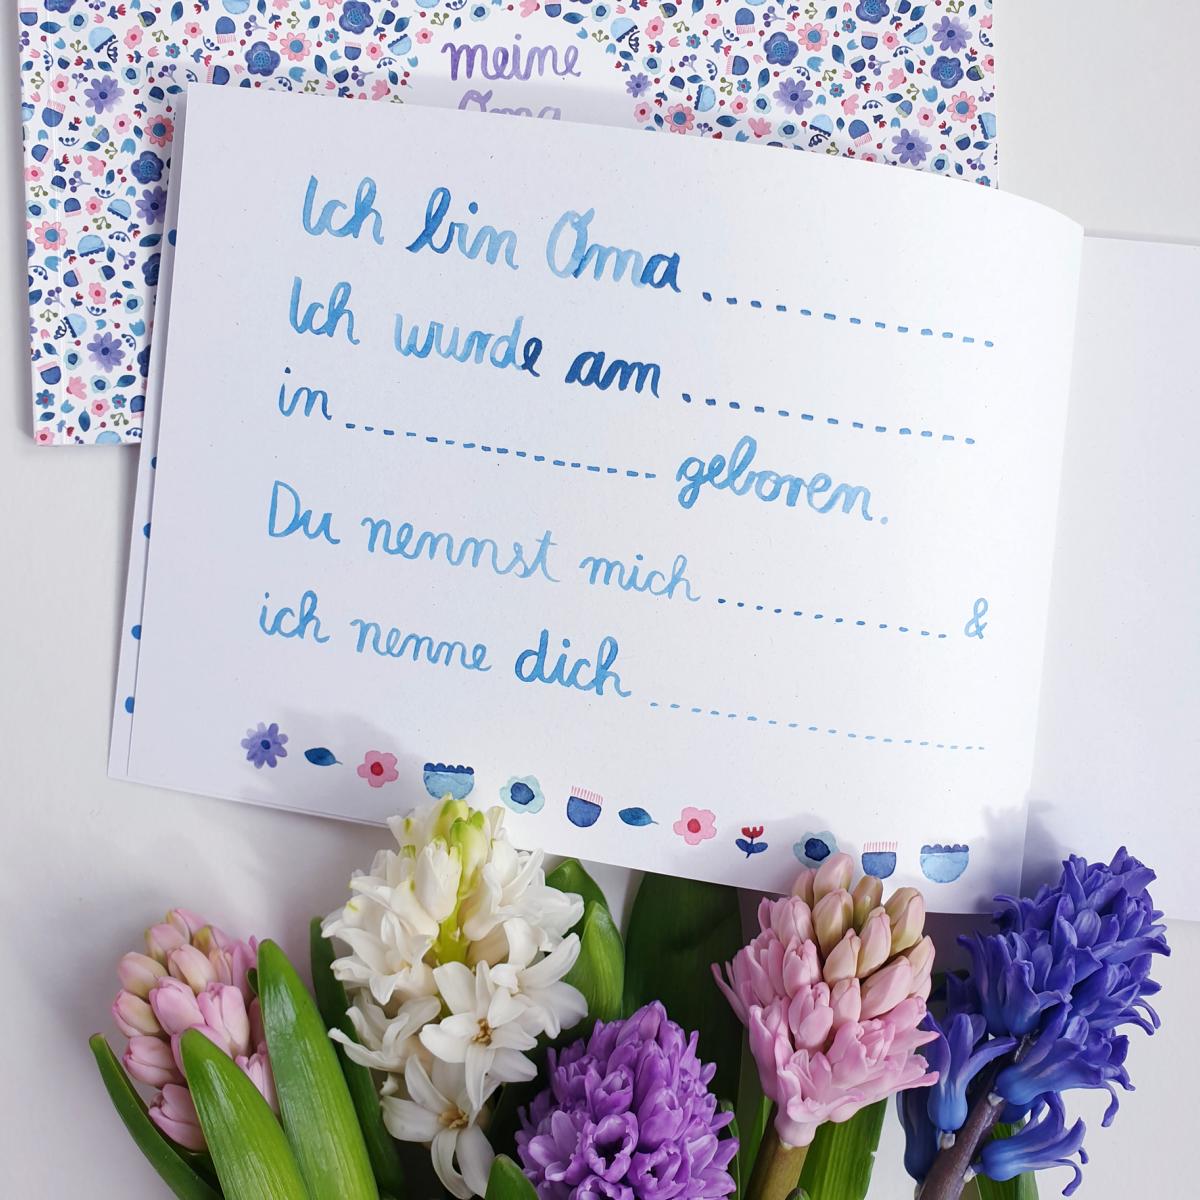 meine
Oma
Ich bin Oma ....................
Ich wurde am ....................
in .................... geboren.
Du nennst mich .................... &
ich nenne dich ....................